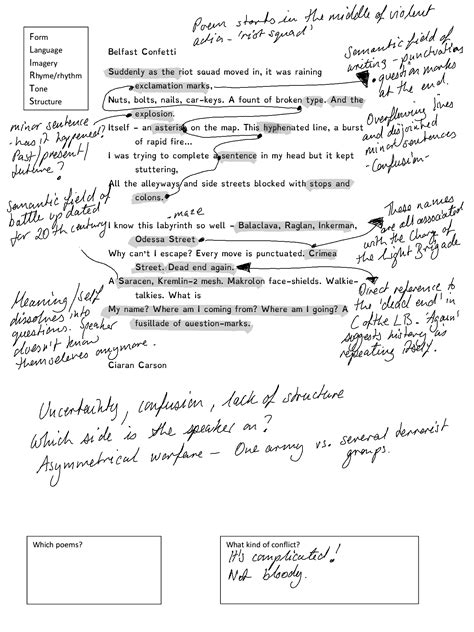 Poem starts in the middle of violent
action - 'riot squad'
Form
Language
Imagery
Rhyme/rhythm
Tone
Structure
Belfast Confetti
Suddenly as the riot squad moved in, it was raining
exclamation marks,
Nuts, bolts, nails, car-keys. A fount of broken type. And the
explosion.
Itself - an asterisk on the map. This hyphenated line, a burst
of rapid fire...
I was trying to complete a sentence in my head but it kept
stuttering,
All the alleyways and side streets blocked with stops and
colons.
- maze
I know this labyrinth so well - Balaclava, Raglan, Inkerman,
Odessa Street -
Why can't I escape? Every move is punctuated. Crimea
Street. Dead end again.
A Saracen, Kremlin-2 mesh. Makrolon face-shields. Walkie-
talkies. What is
My name? Where am I coming from? Where am I going? A
fusillade of question-marks.
Ciaran Carson
Semantic field of
writing - punctuation
question marks
at the end.
Overflowing lines
and disjointed
minor sentences
- Confusion -
minor sentence
- has it happened?
Past/present/
future?
Semantic field of
battle updated
for 20th century
These names
are all associated
with the Charge of
the Light Brigade
Direct reference to
the 'dead end' in
C of the LB. 'Again'
suggests history is
repeating itself.
Meaning/self
dissolves into
questions. Speaker
doesn't know
themselves anymore.
Uncertainty, confusion, lack of structure
Which side is the speaker on?
Asymmetrical warfare - One army vs. several terrorist
groups.
Which poems?
What kind of conflict?
It's complicated!
Not bloody.